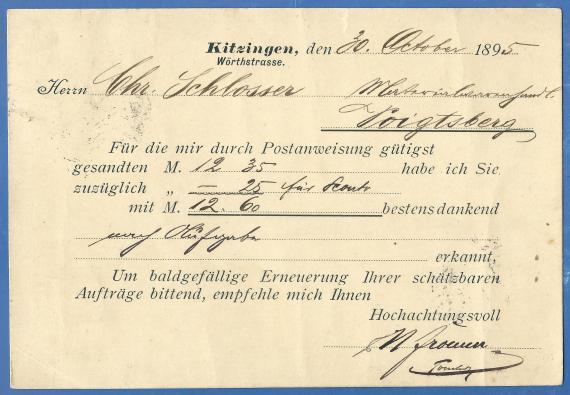 Kitzingen, den 30. October 1895
Wörthstrasse.
Herrn Chr. Schlosser
Voigtsberg
Für die mir durch Postanweisung gütigst
gesandten M. 12 35 habe ich Sie
zuzüglich „ — 25 für Sconto
mit M. 12. 60 bestensdankend
nach Aufgabe
erkannt.
Um baldgefällige Erneuerung Ihrer schätzbaren
Aufträge bittend, empfehle mich Ihnen
Hochachtungsvoll